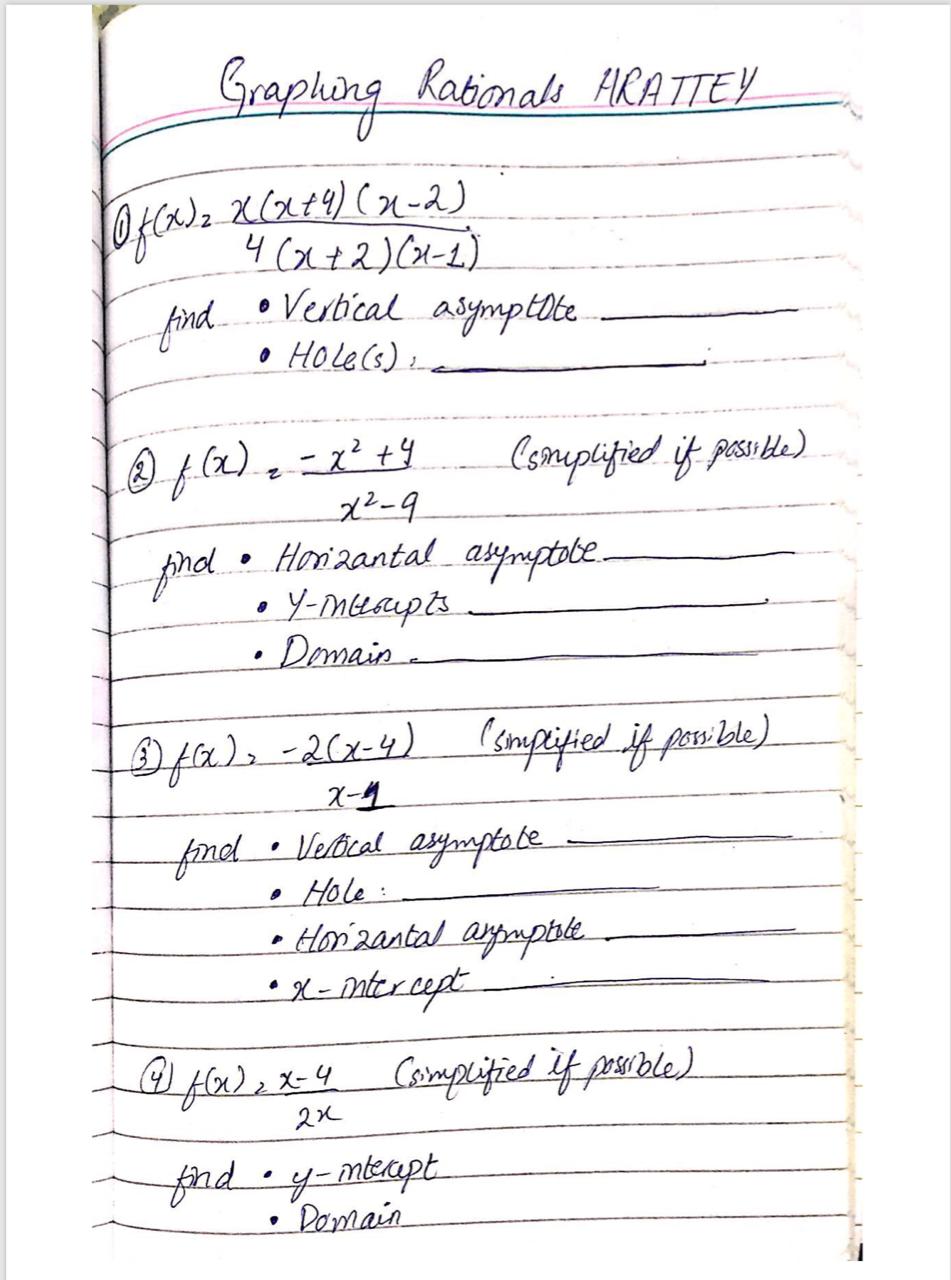 Graphing Rationals HRATTEY
① f(x) = x(x+4)(x-2)
4(x+2)(x-1)
find • Vertical asymptote
• Hole(s):
② f(x) = -x² + 4 (simplified if possible)
x²-9
find • Horizantal asymptote
• Y-intercepts
• Domain
③ f(x) = -2(x-4) (simplified if possible)
x-1
find • Vertical asymptote
• Hole :
• Horizantal asymptote
• x-intercept
④ f(x) = x-4 (simplified if possible)
2x
find • y-intercept
• Domain